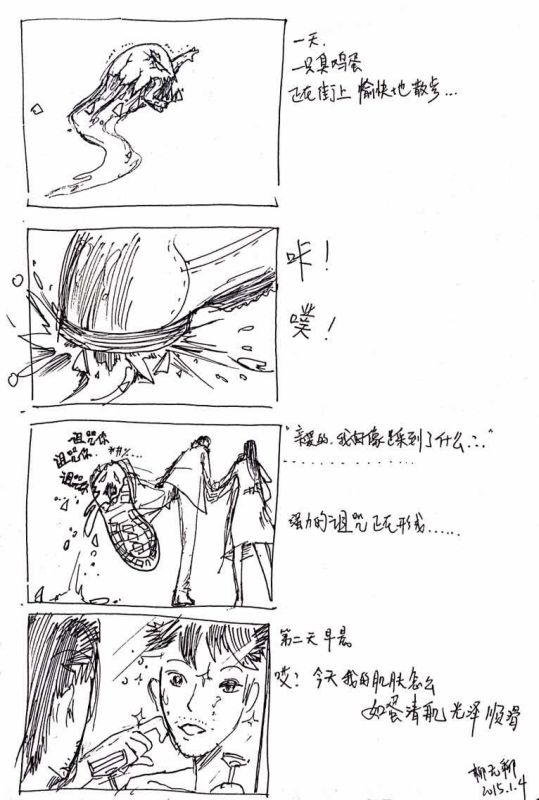 一天.
一只臭鸡蛋
正在街上 愉快地散步...
咔!
噗!
诅咒你
诅咒你
诅咒你
*#%...
"亲爱的.我好像踩到了什么..."
强力的诅咒正在形成......
第二天早晨
哎?今天我的肌肤怎么
如蛋清肌光泽顺滑
柳无聊
2015.1.4